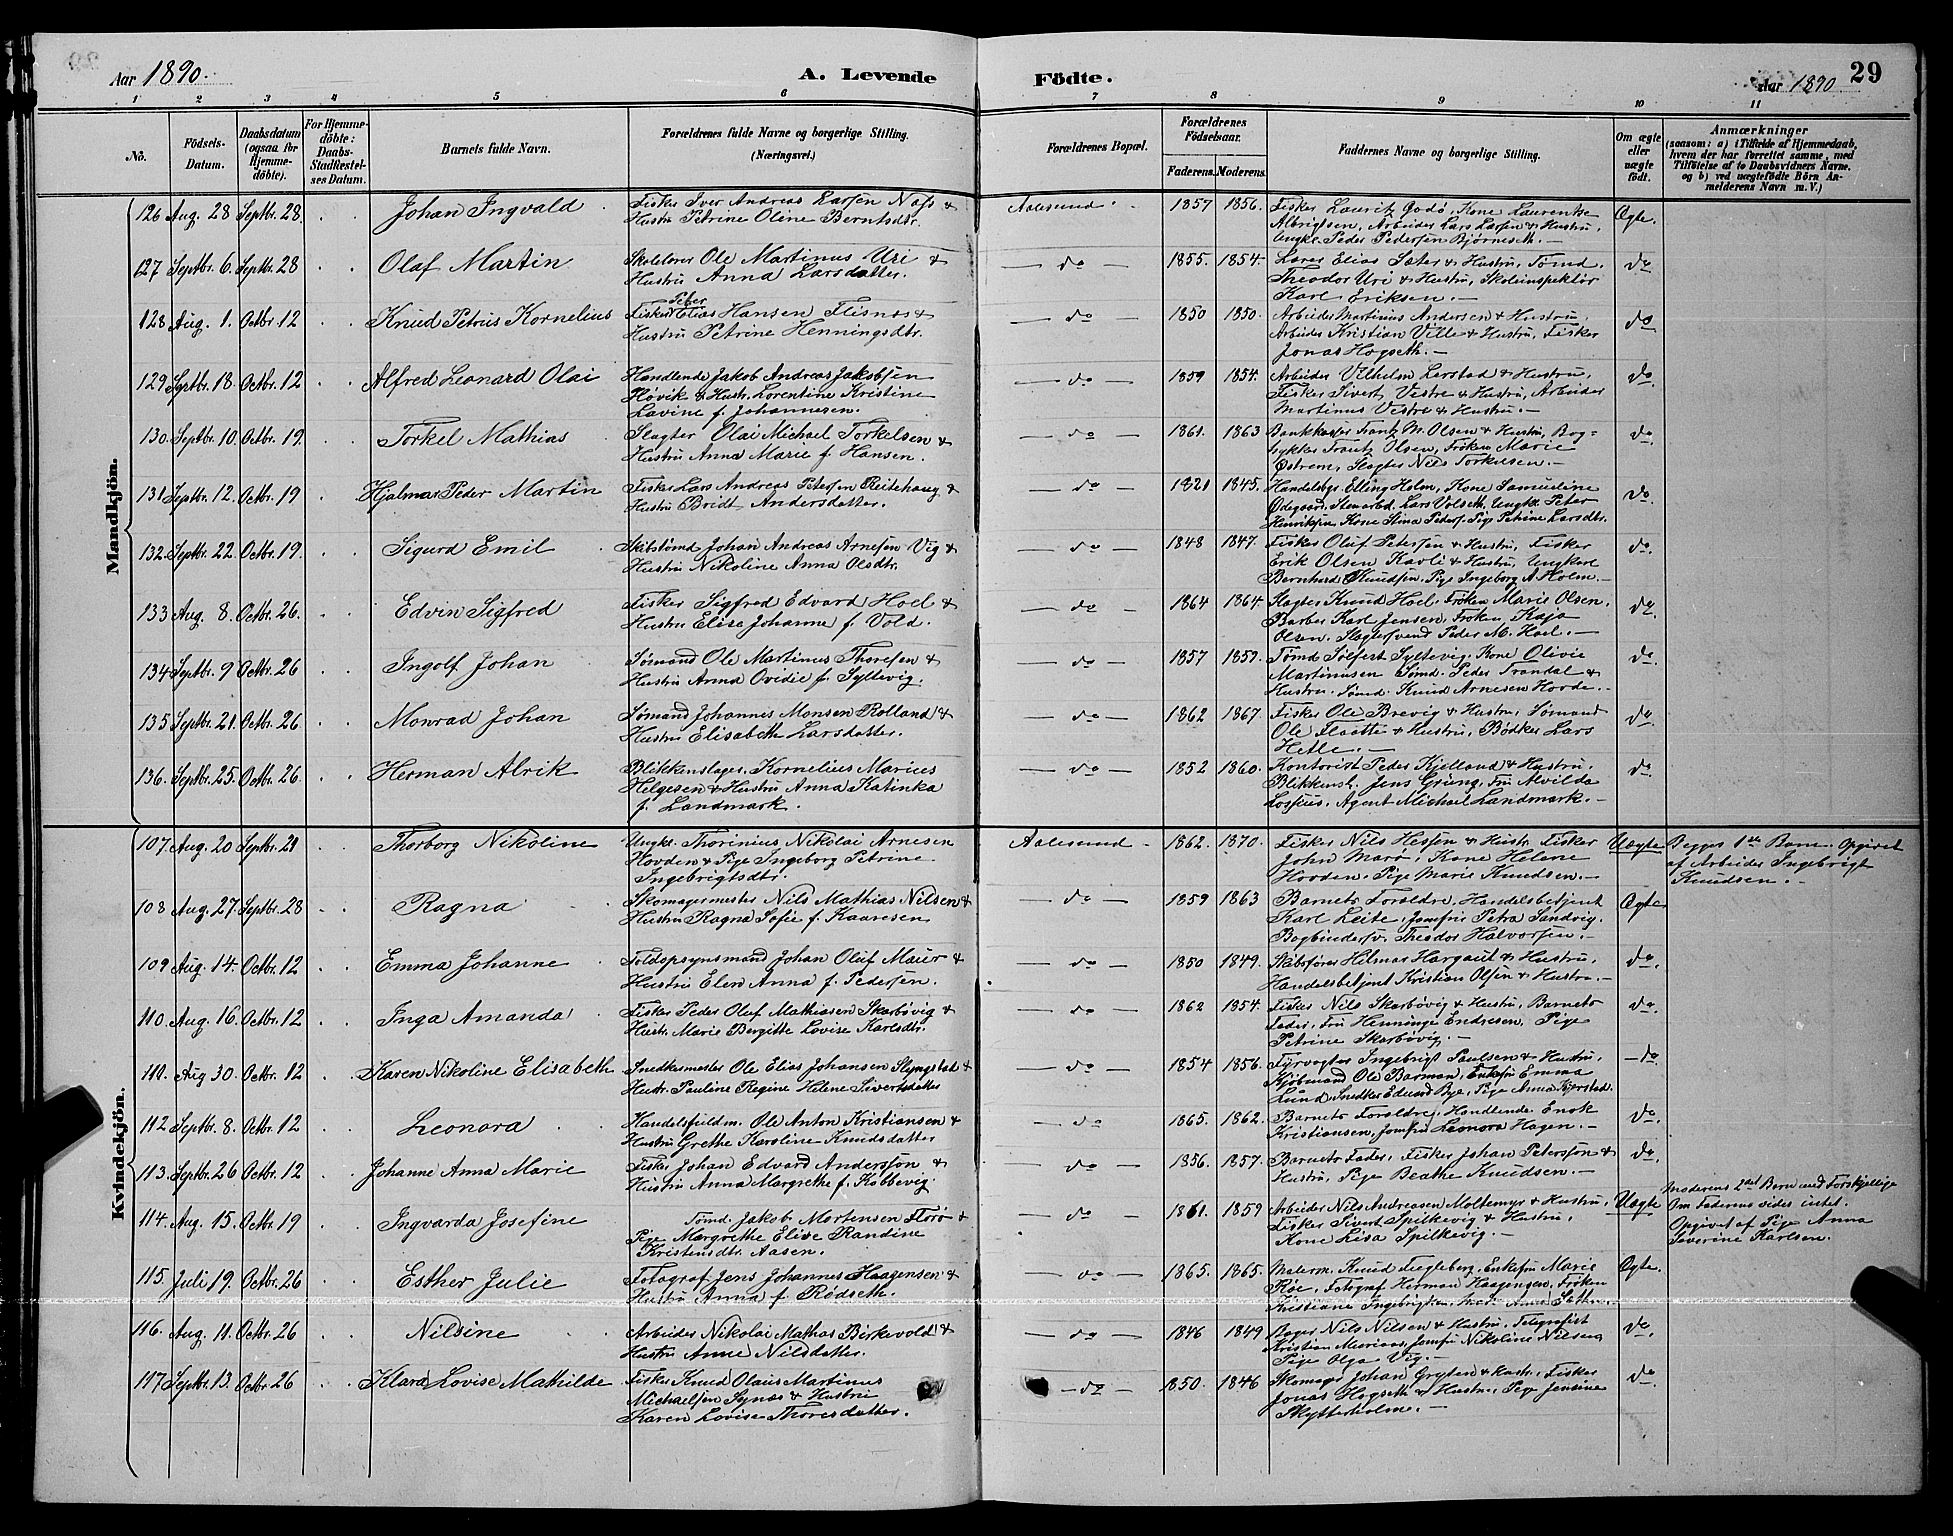 Aar 1890.
A. Levende Födte.
Aar 1890
29
1 2 3 4 5 6 7 8 9 10 11
No.
Födsels-Datum.
Daabsdatum (ogsaa for Hjemme-döbte).
For Hjemme-döbte: Daabs-Stadfæstel-ses Datum.
Barnets fulde Navn.
Forældrenes fulde Navne og borgerlige Stilling. (Næringsvei.)
Forældrenes Bopæl.
Forældrenes Födselsaar.
Faderens. Moderens.
Faddernes Navne og borgerlige Stilling.
Om ægte eller uægte födt.
Anmærkninger
(saasom: a) i Tilfælde af Hjemmedaab, hvem der har forrettet samme, med Tilföielse af to Daabsvidners Navne, og b) ved uægtefödte Börn An-melderens Navn m. V.)
Mandkjön.
126 Aug. 28 Septbr. 28. Johan Ingvald Fisker Iver Andreas Larsen Nafs &
Hustru Petrine Oline Berntsdtr. Aalesund. 1857 1856. Fisker Lauritz Godö, Kone Laurentse
Albrigtsen, Arbeider Lars Larsen & Hustru,
Ungkr. Peder Pedersen Bjørneseth. Ægte.
127 Septbr. 6. Septbr. 28 Olaf Martin Skolelærer Ole Martinus Uri &
Hustru Anna Larsdatter. do 1855. 1854. Lærer Elias Sæter & Hustru, Tømd.
Theodor Uri & Hustru, Skoleinspektør
Karl Eriksen. do
128 Aug. 1. Octbr. 12 Knud Petrus Kornelius Fisker Peter Elias Hansen Flisnes &
Hustru Petrine Henningsdtr. do 1850 1850. Arbeider Martinus Andersen & Hustru,
Arbeider Kristian Ville & Hustru, Fisker
Jonas Hogseth. do
129 Septbr. 18. Octbr. 12 Alfred Leonard Olai Handlende Jakob Andreas Jakobsen
Hovik & Hustr. Lorentine Kristine
Lavine f. Johannesen. do 1859 1854. Arbeider Vilhelm Lerstad & Hustru,
Fisker Sivert Vestre & Hustru, Arbeider
Martinus Vestre & Hustru. do
130. Septbr. 10. Octbr. 19. Torkel Mathias Slagter Olai Michael Torkelsen &
Hustru Anna Marie f. Hansen. do 1861. 1863 Bankkasser Frantz M. Olsen & Hustru, Bog-
tykker Frantz Olsen, Frøken Marie
Østrem, Slagter Nils Torkelsen. do
131 Septbr. 12. Octbr. 19 Hjalmar Peder Martin Fisker Lars Andreas Petersen Reitehaug &
Hustru Bridt Andersdatter. do 1821 1845. Handelsbgr. Elling Holm, Kone Samueline
Ødegaard, Stenarbd. Lars Volseth, Ungkr. Peter
Henriksen, Kone Stina Peders. Pige Petrine Larsdtr. do
132. Septbr. 22. Octbr. 19. Sigurd Emil Skibstømd. Johan Andreas Arnesen Vig &
Hustru Nikoline Anna Olsdtr. do 1848 1847. Fisker Oluf Petersen & Hustru, Fisker
Erik Olsen Kavli & Hustru, Ungkarl
Bernhard Knudsen, Pige Ingeborg A. Holm. do
133 Aug. 8. Octbr. 26. Edvin Sigfred Fisker Sigfred Edvard Hoel &
Hustru Elise Johanne f. Vold. do 1864 1864. Slagter Knud Hoel, Frøken Marie Olsen,
Barber Karl Jensen, Frøken Kaja
Olsen, Slagtersvend Peder M. Hoel. do
134 Septbr. 9 Octbr. 26 Ingolf Johan Sømand Ole Martinus Thoresen &
Hustru Anna Ovidie f. Syltevig. do 1857 1859. Tømd. Sølfest Syltevig, Kone Olivie
Martinusen Sømd. Peder Trandal &
Hustru. Tømd. Knud Arnesen Hovde. do
135 Septbr. 21. Octbr. 26 Monrad Johan Sømand Johannes Monsen Rolland &
Hustru Elisabeth Larsdatter. do 1862 1867. Fisker Ole Brevig & Hustru, Sømand
Ole Flaatte & Hustru, Bødker Lars
Hetle. do
136. Septbr. 25. Octbr. 26 Herman Alrik Blikkenslager Kornelius Marius
Helgesen & Hustru Anna Katinka
f. Landmark. do 1852 1860. Kontorist Peder Kjelland & Hustru.
Blikkensl. Jens Grüng, Fru Alvilda
Lossius, Agent Michael Landmark. do
Kvindekjön.
107. Aug. 20 Septbr. 21 Thorborg Nikoline Ungk. Thorinius Nikolai Arnesen
Hovden & Pige Ingeborg Petrine
Ingebrigtsdtr. Aalesund 1862. 1870. Fisker Nils Hessen & Hustr. Fisker
John Marø, Kone Helene
Hovden. Pige Marie Knudsen. Uægte Begges 1ste Barn. Opgivet
af Arbeider Ingebrigt
Knudsen.
108 Aug. 27. Septbr. 28 Ragna Skomagermester Nils Mathias Nilsen &
Hustru Ragna Sofie f. Kaaresen do 1859 1863 Barnets Forældre, Handelsbetjent
Karl Leite, Jomfru Petra Sandvig,
Bogbindersv. Theodor Halvorsen. Ægte
109 Aug. 14. Octbr. 12 Emma Johanne Toldopsynsmand Johan Oluf Maur &
Hustru Elen Anna f. Pedersen. do 1850 1849. Skibsfører Hilmar Hargaut & Hustru,
Handelsbetjent Kristian Olsen & Hustru. do.
110. Aug. 16. Octbr. 12 Inga Amanda Fisker Peder Oluf Mathiasen Skarbøvig &
Hustr. Marie Bergitte Lovise Karlsdtr. do 1862 1854. Fisker Nils Skarbøvig & Hustru, Barnets
Fader, Fru Henninge Endresen, Pige
Petrine Skarbøvig. do.
111. Aug 30. Octbr. 12 Karen Nikoline Elisabeth Snedkermester Ole Elias Johansen Slyngstad &
Hustr. Pauline Regine Helene Sivertsdatter do 1854 1856. Fyrvogter Ingebrigt Paulsen & Hustru,
Kjøbmand Ole Barman, Enkefru Emma
Lund, Snedker Eduard Bye, Pige Anna Kjerstad. do
112 Septbr. 8. Octbr. 12 Leonora Handelsfuldm. Ole Anton Kristiansen &
Hustru Grethe Karoline Knudsdatter do 1865. 1862. Barnets Forældre, Handlende Enok
Kristiansen, Jomfru Leonora Hagen. do.
113. Septbr. 26 Octbr. 12 Johanne Anna Marie Fisker Johan Edvard Anderssen &
Hustru Anna Margrethe f. Kobbevig. do 1856. 1857. Barnets Fader, Fisker Johan Peterssen &
Hustru, Pige Beathe Knudsen. do.
114. Aug. 15. Octbr. 19 Ingvarda Josefine Tømd. Jakob Mortensen Florø &
Pige Margrethe Elive Randine
Kristensdtr. Aasen. do 1861. 1859 Arbeider Nils Andreasen Moltemyr & Hustru,
Fisker Sivert Spilkevig & Hustru,
Kone Lisa Spilkevig. Uægte Moderens 2det Barn med Forskjellige
Om Faderens vides intet.
Opgivet af Pige Anna
Severine Karlsen.
115. Juli 19. Octbr. 26 Esther Julie Fotograf Jens Johannes Haagensen &
Hustru Anna f. Rødseth. do 1865. 1865. Malerm. Knud Fugleberg, Enkefru Marie
Røe, Fotograf Herman Haagensen, Frøken
Kristiane Ingebrigtsen, Anna Sather. Ægte.
116. Aug. 11. Octbr. 26 Nilsine Arbeider Nikolai Mathias Birkevold &
Hustru Anne Nilsdatter. do 1846 1849 Bager Nils Nilsen & Hustru, Telegrafist
Kristian Jomfru Nikoline Nilsen,
Pige Olga Vig. do.
117 Septbr. 13. Octbr. 26 Klara Lovise Mathilde Fisker Knud Olaus Martinus
Michaelsen Synes & Hustru
Karen Lovise Thoresdatter. do 1850. 1846 Skomager Johan Gryten & Hustr. Fisker
Jonas Hogseth & Hustru, Pige Jensine
Skytterholme. do.